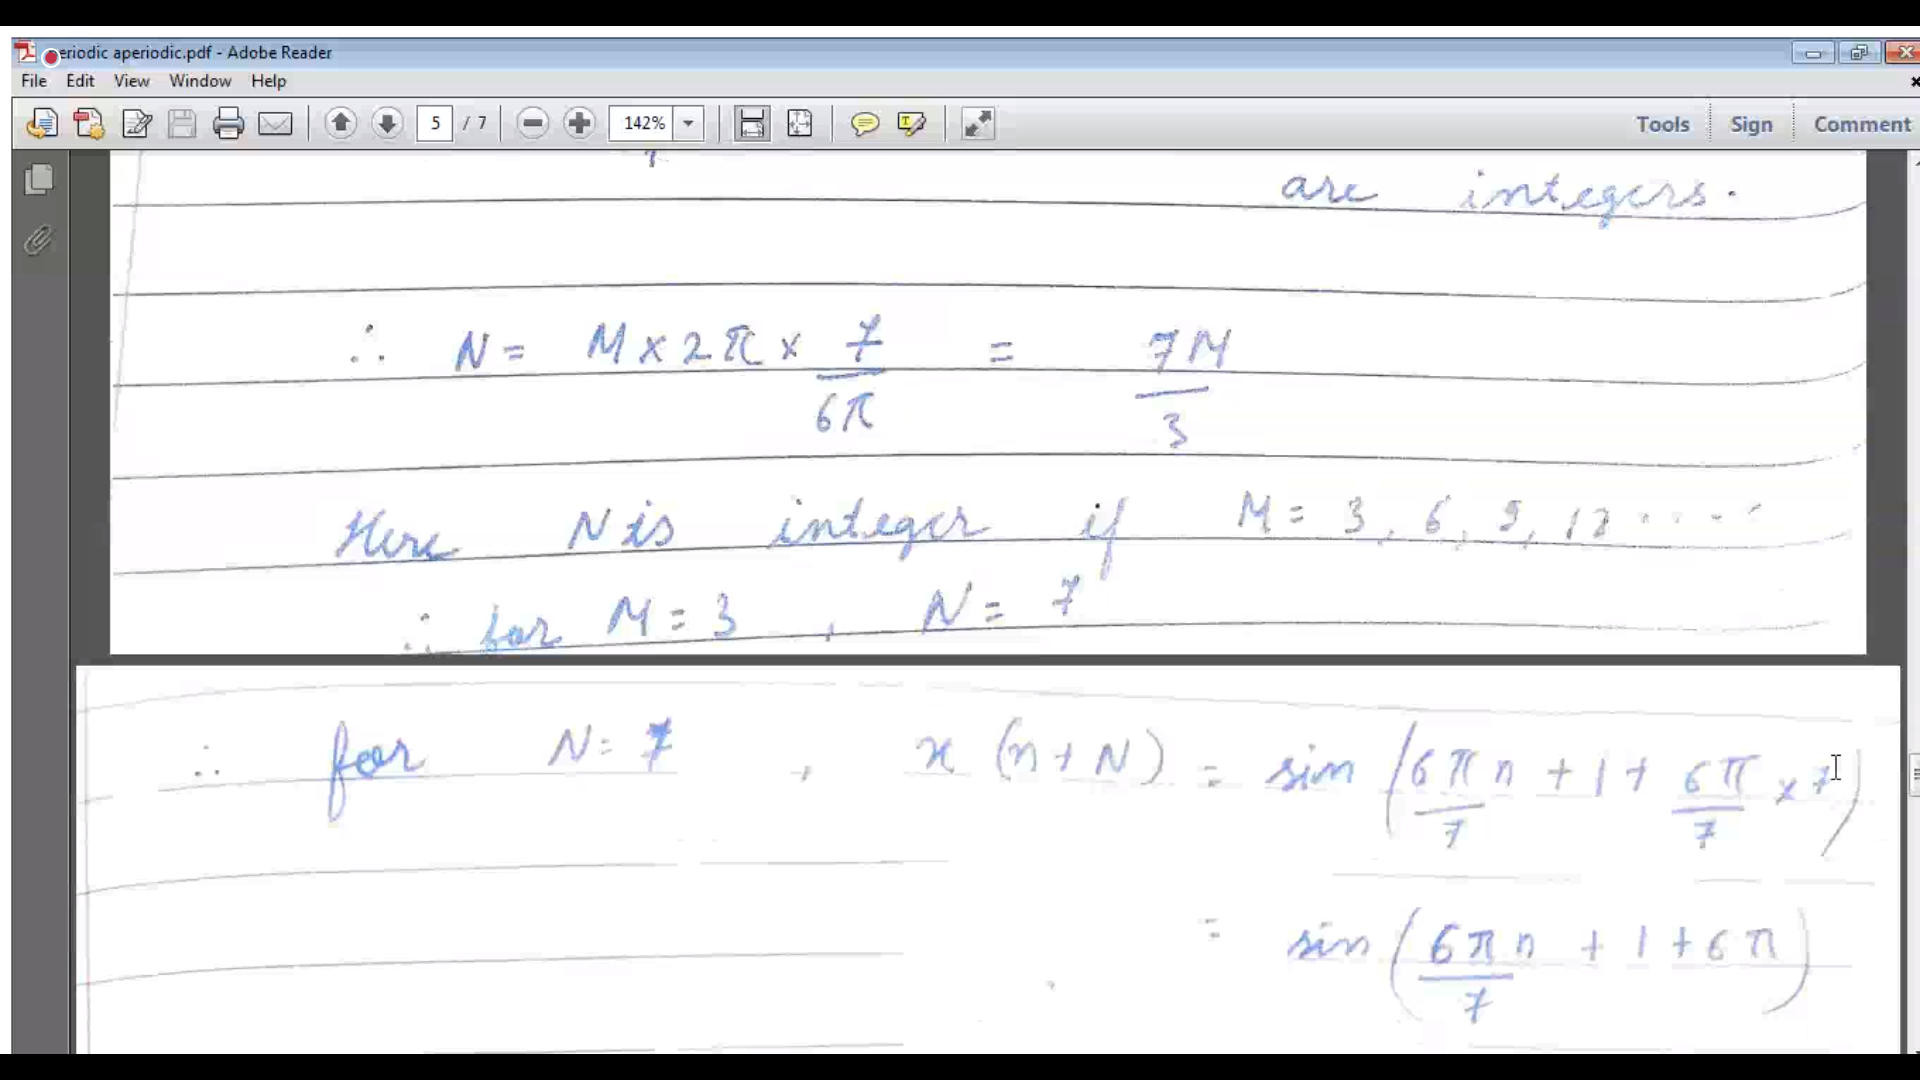 eriodic aperiodic.pdf - Adobe Reader
File Edit View Window Help
5 / 7 142% Tools Sign Comment
are integers.
∴ N = M × 2π × 7/6π = 7M/3
Here N is integer if M = 3, 6, 9, 12 .....
∴ for M = 3 , N = 7
∴ for N = 7 , x (n + N) = sin (6πn/7 + 1 + 6π/7 × 7)
= sin (6πn/7 + 1 + 6π)